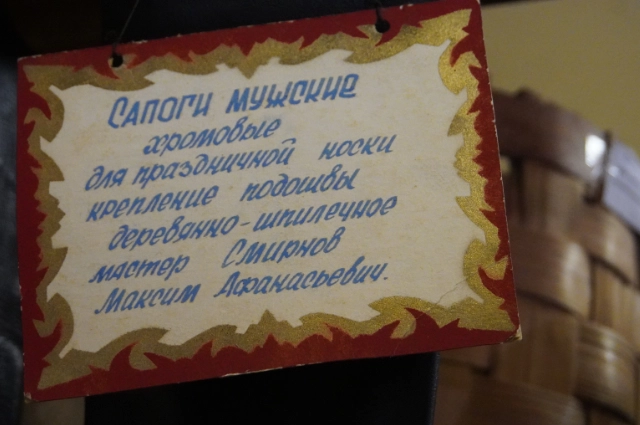 Сапоги мужские
хромовые
для праздничной носки
крепление подошвы
деревянно-шпилечное
мастер Смирнов
Максим Афанасьевич.